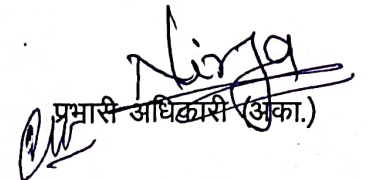 Nirja
प्रभारी अधिकारी (अका.)